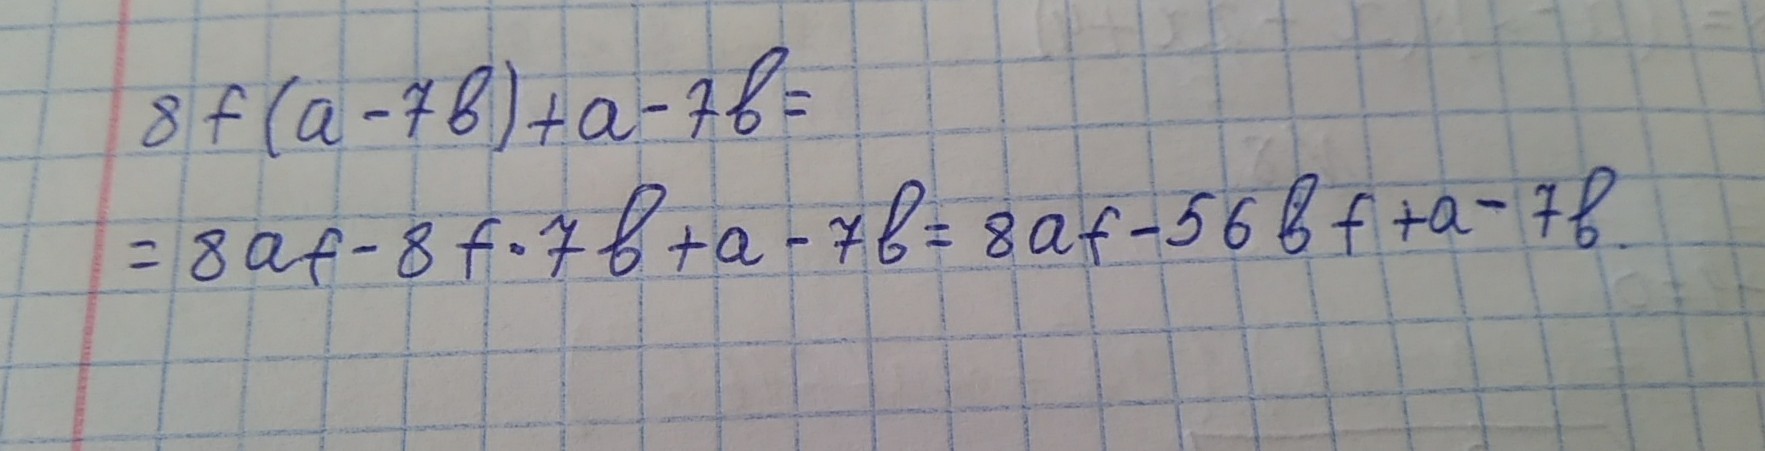 8f(a-7b)+a-7b=
=8af-8f·7b+a-7b=8af-56bf+a-7b.